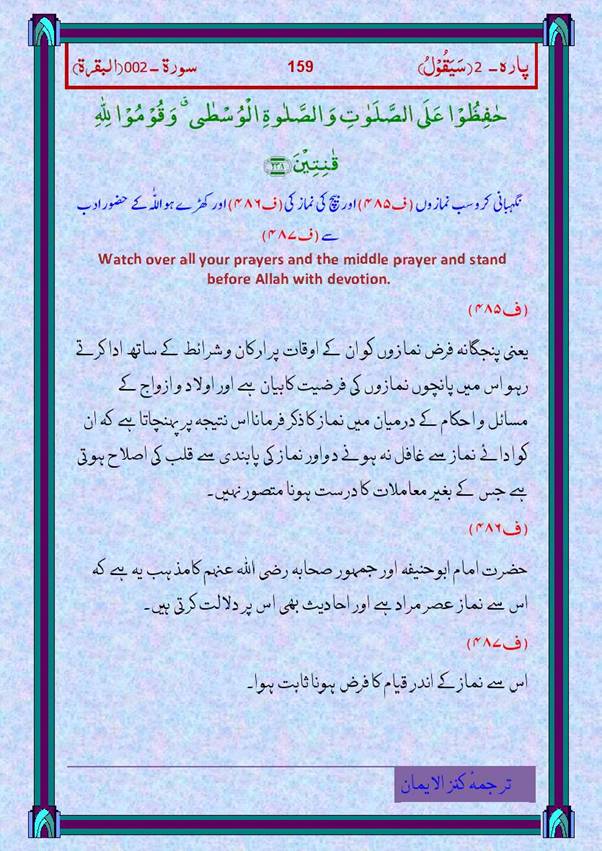 پارہ۔ 2 (سَیَقُوْلُ) 159 سورۃ۔002 (البقرۃ)
حٰفِظُوْا عَلَی الصَّلَوٰتِ وَالصَّلٰوةِ الْوُسْطٰی ۗ وَقُوْمُوْا لِلّٰهِ
قٰنِتِیْنَ ﴿۲۳۸﴾
نگہبانی کرو سب نمازوں (ف۴۸۵) اور بیچ کی نماز کی (ف۴۸۶) اور کھڑے ہو اللہ کے حضور ادب
سے (ف۴۸۷)
Watch over all your prayers and the middle prayer and stand
before Allah with devotion.
(ف۴۸۵)
یعنی پنجگانہ فرض نمازوں کو ان کے اوقات پر ارکان و شرائط کے ساتھ ادا کرتے
رہو اس میں پانچوں نمازوں کی فرضیت کا بیان ہے اور اولاد و ازواج کے
مسائل و احکام کے درمیان میں نماز کا ذکر فرمانا اس نتیجہ پر پہنچاتا ہے کہ ان
کو ادائے نماز سے غافل نہ ہونے دو اور نماز کی پابندی سے قلب کی اصلاح ہوتی
ہے جس کے بغیر معاملات کا درست ہونا متصور نہیں۔
(ف۴۸۶)
حضرت امام ابوحنیفہ اور جمہور صحابہ رضی اللہ عنہم کا مذہب یہ ہے کہ
اس سے نماز عصر مراد ہے اور احادیث بھی اس پر دلالت کرتی ہیں۔
(ف۴۸۷)
اس سے نماز کے اندر قیام کا فرض ہونا ثابت ہوا۔
ترجمۂ کنز الایمان